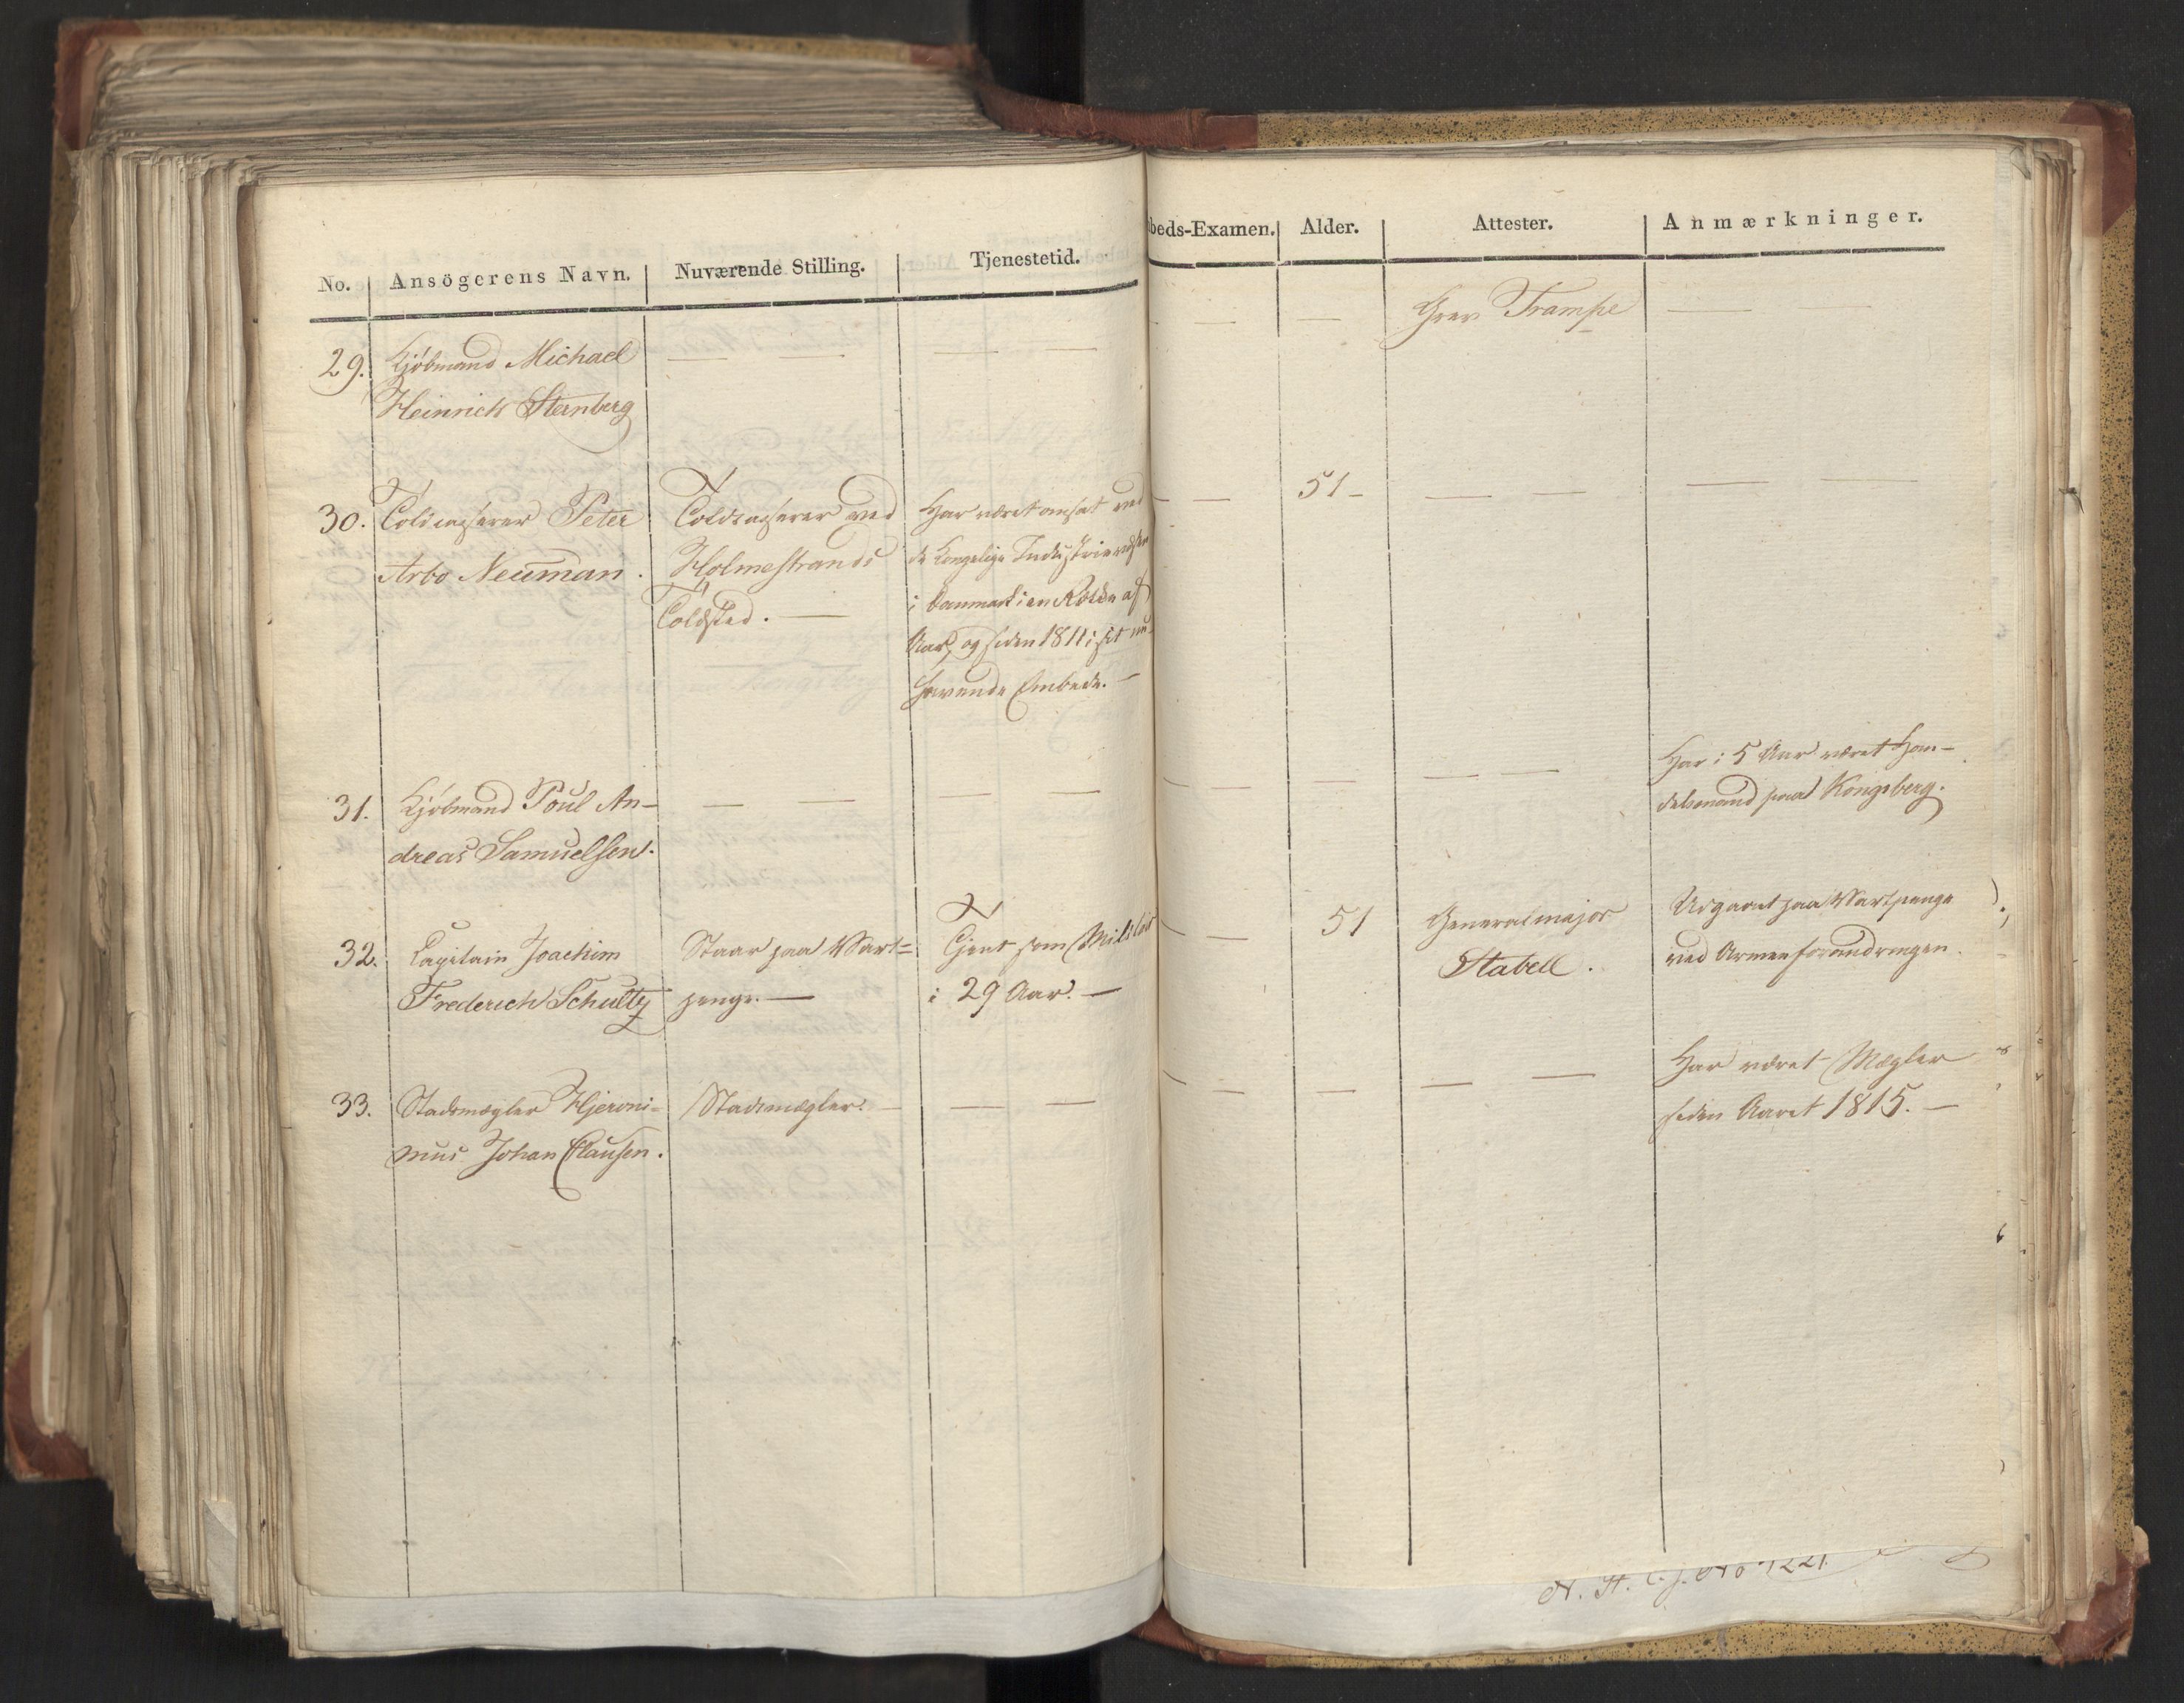 No. Ansögerens Navn. Nuværende Stilling. Tjenestetid.
29. Kjöbmand Michael — — — —
Heinrich Sternberg
30. Toldcasserer Peter Toldcasserer ved Har været ansat ved
Arbo Neuman. Holmestrands de Kongelige Industrie
Toldsted. — i Danmark i en Række af
Aar, og siden 1811 i sit nu-
havende Embede. —
31. Kjöbmand Poul An- — — — —
dreas Samuelsen.
32. Capitain Joachim Staar paa Vart= Tjent som Militær
Frederich Schultz penge. — i 29 Aar. —
33. Stadsmægler Hjeroni= Stadsmægler. — — —
mus Johan Clausen.
beds-Examen. Alder. Attester. Anmærkninger.
— — — Grev Trampe — —
— — 51- — — — —
Har i 5 Aar været Han-
— — — — — delsmand paa Kongsberg.
— 51 Generalmajor Udgaaet paa Vartpenge
Stabell. ved Armeeforandringen.
Har været Mægler
— — — — — siden Aaret 1815. —
N. St. C. J. No 1221.